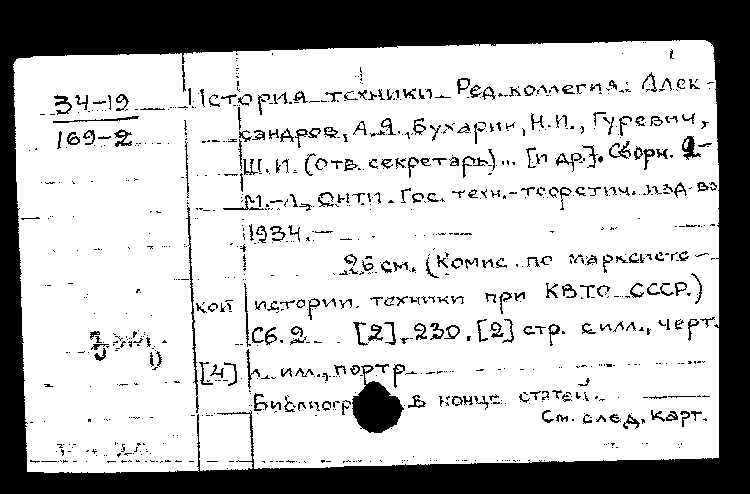 34-19
169-2
История техники Ред. коллегия: Алек-
сандров, А.Я., Бухарин, Н.И., Гуревич,
Ш.И. (Отв. секретарь)... [и др.]. Сборн. 2-
М.-Л., ОНТИ. Гос. техн.-теоретич. изд-во
1934.—
26 см. (Комис. по марксистс-
кой истории техники при КВТО СССР.)
Сб. 2 [2], 230, [2] стр. с илл., черт.
[4] л. ил., портр
Библиогр в конце статей.
См. след. карт.